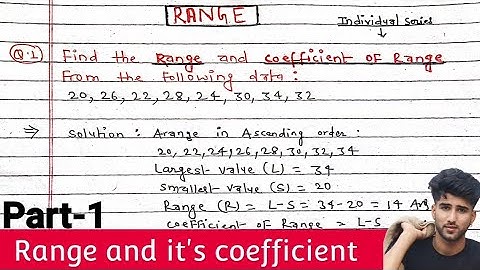 RANGE
Individual series
Q.1 Find the Range and coefficient of Range
From the following data:
20, 26, 22, 28, 24, 30, 34, 32
⇒ Solution: Arange in Ascending order:
20, 22, 24, 26, 28, 30, 32, 34
Largest value (L) = 34
Smallest value (S) = 20
Range (R) = L-S = 34-20 = 14 Ans
coefficient of Range = L-S
Part-1
Range and it's coefficient